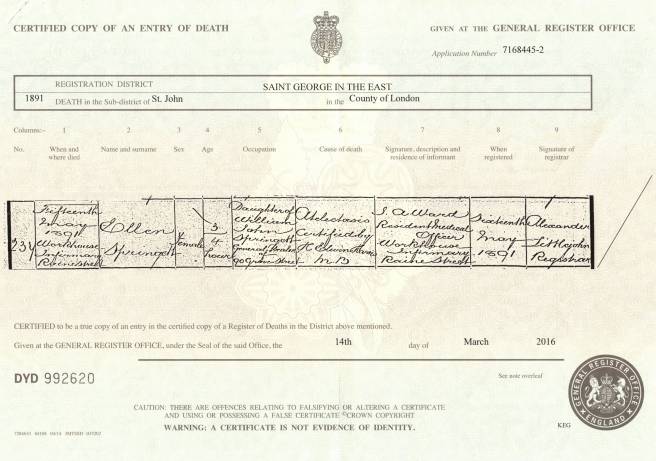 CERTIFIED COPY OF AN ENTRY OF DEATH
GIVEN AT THE GENERAL REGISTER OFFICE
Application Number 7168445-2
REGISTRATION DISTRICT SAINT GEORGE IN THE EAST
1891 DEATH in the Sub-district of St. John in the County of London
Columns:- 1 2 3 4 5 6 7 8 9
No. When and where died Name and surname Sex Age Occupation Cause of death Signature, description and residence of informant When registered Signature of registrar
Fifteenth
May
1891
Workhouse
Infirmary
Raine Street
Ellen
Springott
Female
3/4
hours
Daughter of
William
John
Springott
General Labourer
Street
Atelectasis
Certified by
M.B
S. A. Ward
Resident Medical
Officer
Workhouse
Infirmary
Raine Street
Sixteenth
May
1891
Alexander
Littlejohn
Registrar
CERTIFIED to be a true copy of an entry in the certified copy of a Register of Deaths in the District above mentioned.
Given at the GENERAL REGISTER OFFICE, under the Seal of the said Office, the 14th day of March 2016
DYD 992620
See note overleaf
CAUTION: THERE ARE OFFENCES RELATING TO FALSIFYING OR ALTERING A CERTIFICATE
AND USING OR POSSESSING A FALSE CERTIFICATE ©CROWN COPYRIGHT
WARNING: A CERTIFICATE IS NOT EVIDENCE OF IDENTITY.
KEG
GENERAL REGISTER OFFICE
ENGLAND